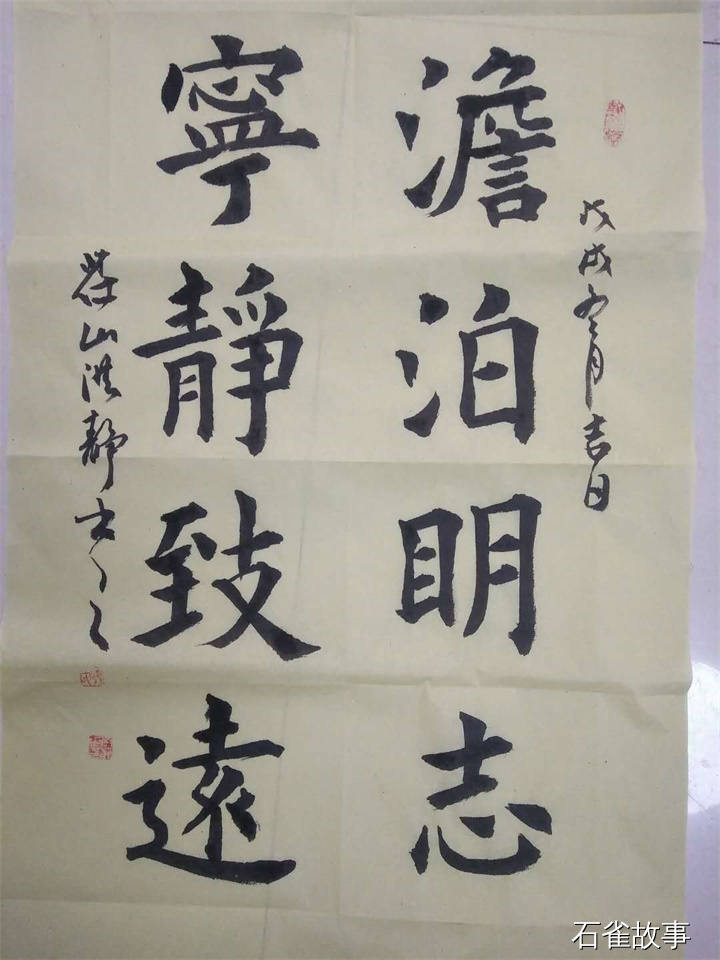 戊戌冬月吉日
澹泊明志
寧靜致遠
山洪靜書
石雀故事